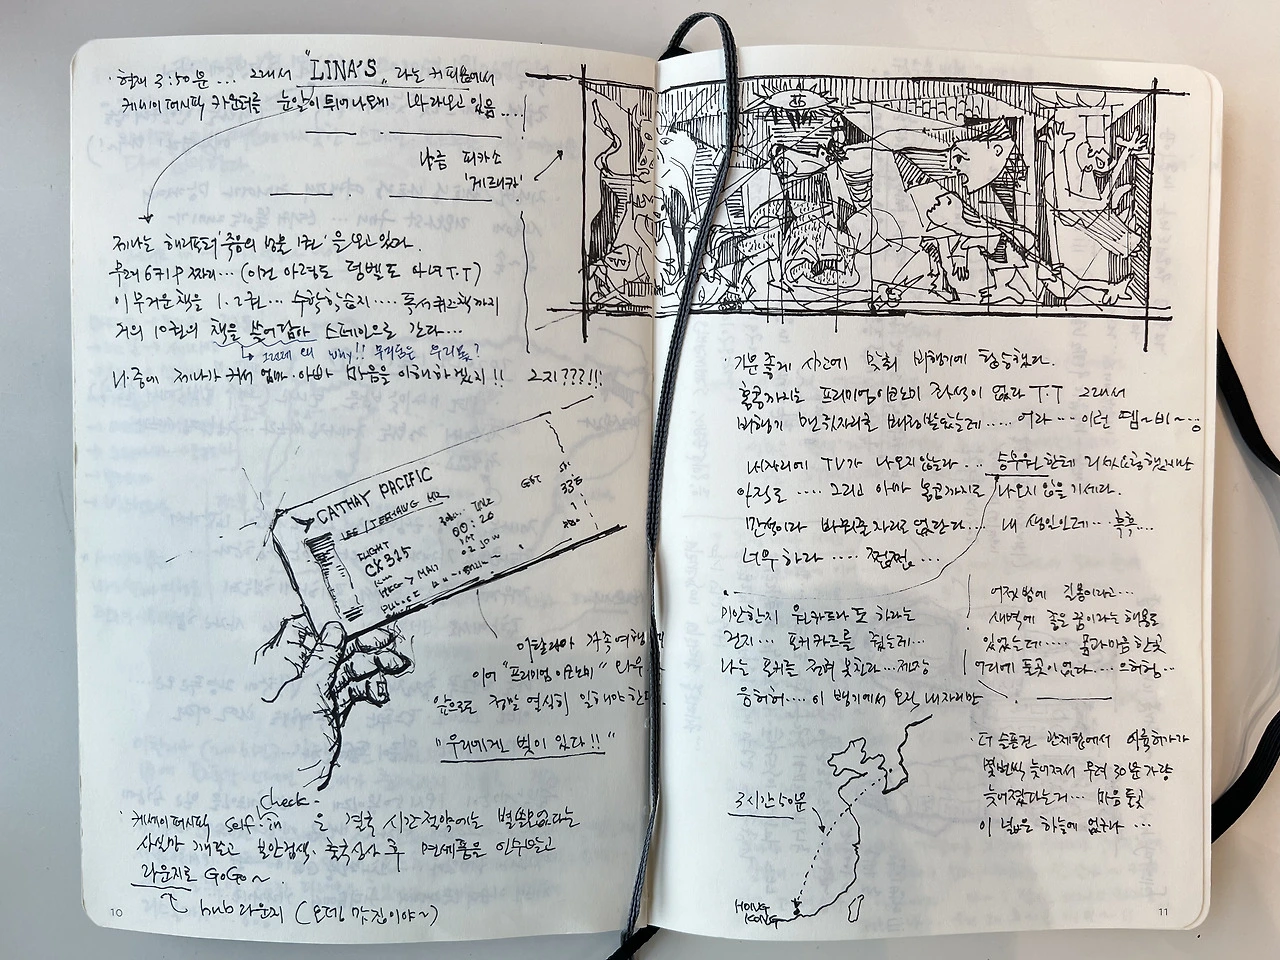 · 현재 3:50분 ... 그래서 "LINA'S" 라는 커피숍에서
케세이퍼시픽 카운터를 눈알이 튀어나오게 노려보고 있음 ....
나름 피카소
'게르니카'
제나는 해리포터 '죽음의 성물 1권'을 보고 있다.
무려 6키로 짜리... (이건 아령도 덤벨도 아녀 T.T)
이 무거운 책을 1.2권... 수학학습지.... 독서퀴즈책까지
거의 10권의 책을 쓸어담아 스페인으로 간다...
↳ 그런데 왜 why!! 무리는 우리 몫?
나중에 제나가 커서 엄마·아빠 마음을 이해하겠지!! 그지???!!!
CATHAY PACIFIC
LEE / MR
FLIGHT
CX 315
00:20
33E
이탈리아 가족여행
이어 "프리미엄 이코노미"
앞으로 정말 열심히 일해야 한다.
"우리에겐 빚이 있다!!"
check-
· 케세이퍼시픽 self-in 은 결국 시간절약에는 별 쓸모없다는
사실만 깨닫고 보안검색, 출국심사 후 면세품을 인수받고
라운지로 GoGo~
hub 라운지 (오뎅 맛집이야~)
10
· 기분좋게 시간에 맞춰 비행기에 탑승했다.
홍콩까지는 프리미엄이코노미 좌석이 없다 T.T 그래서
비행기 맨 뒷자리를 배정받았는데..... 어라... 이런 뗌~비~;;
내자리에 TV가 나오지않는다... 승무원한테 리셋요청했지만
아직도 .... 그리고 아마 홍콩까지도 나오지 않을 기세다.
만석이라 바꿔줄 자리도 없단다... 내 생일인데... 흑흑...
너무하다 .... 쩝쩝...
미안한지 워카드라도 하라는
건지... 포커카드를 줬는데...
나는 포커는 전혀 못친다...제장
음허허.... 이 뱅기에서 오직 내자리만
어젯밤에 길몽이라고...
새벽에 좋은 꿈이라는 해몽도
있었는데..... 꿈과 마음 한곳
어디에 둘곳이 없다... 으허헝...
· 더 슬픈건 관제탑에서 이륙허가가
몇번씩 늦어져서 무려 30분가량
늦어졌다는거... 마음 둘곳
이 넓은 하늘에 없구나 ...
3시간 50분
HONG
KONG
11